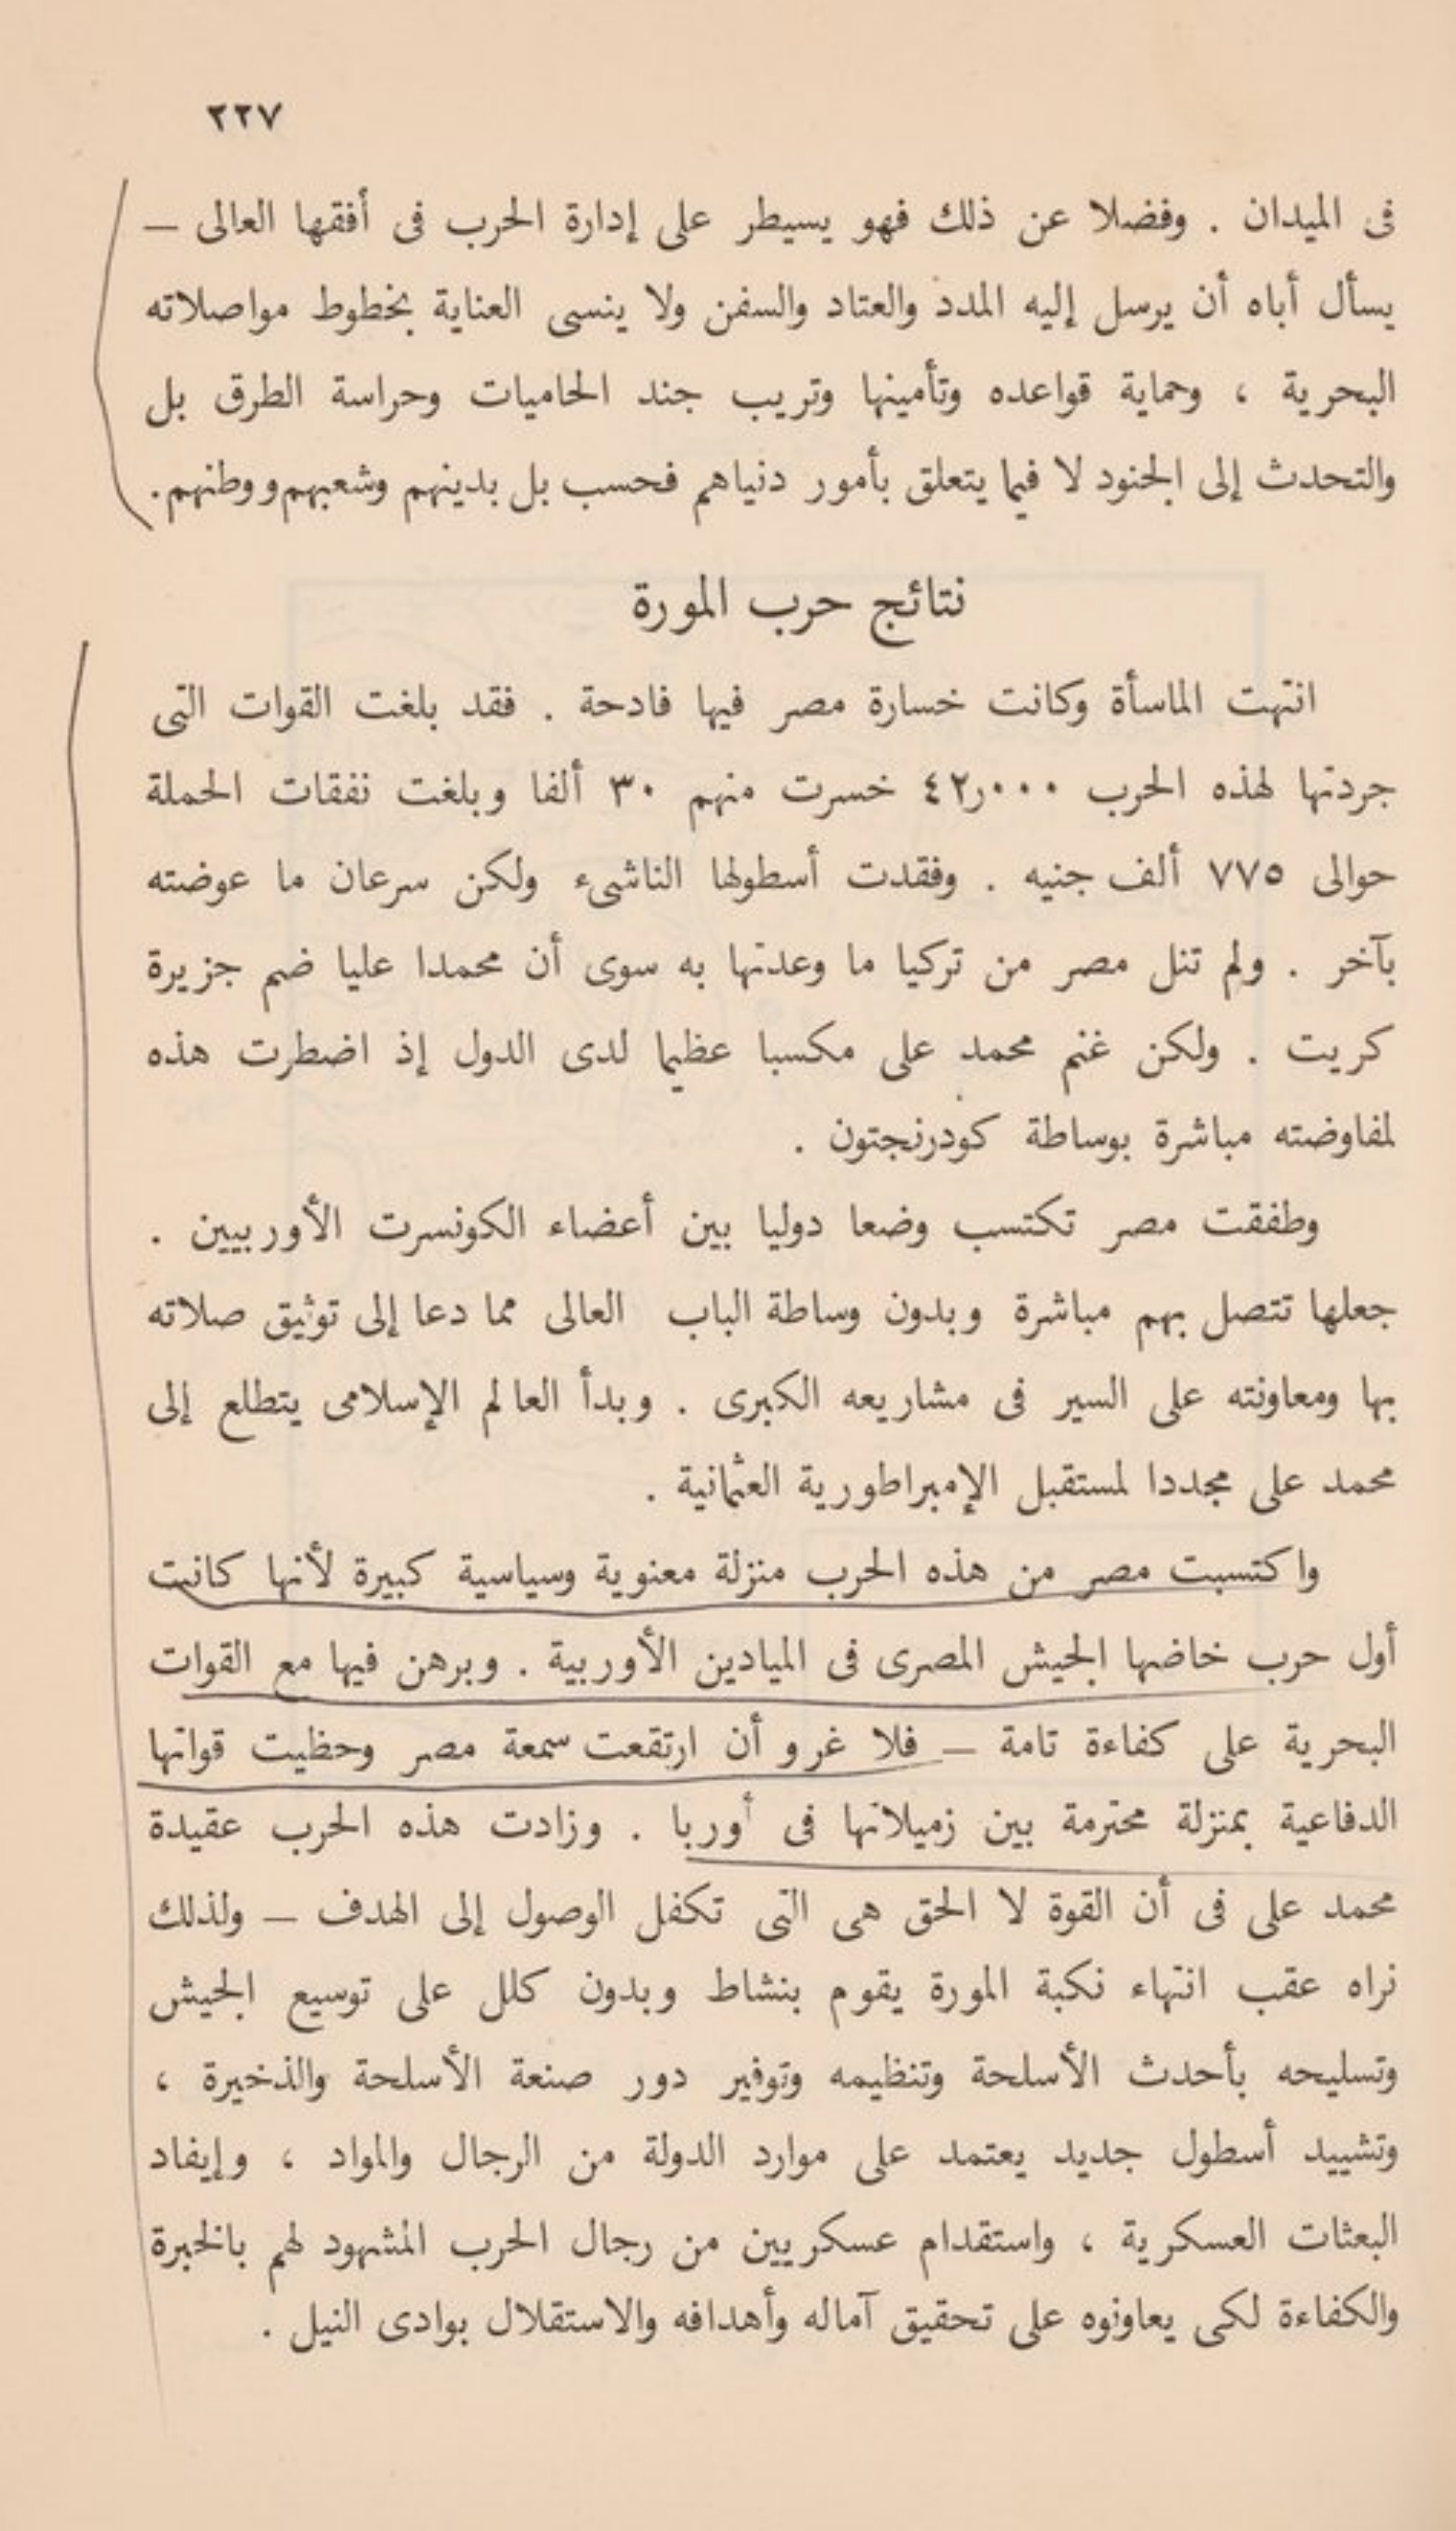 ٢٢٧
فى الميدان . وفضلا عن ذلك فهو يسيطر على إدارة الحرب فى أفقها العالى —
يسأل أباه أن يرسل إليه المدد والعتاد والسفن ولا ينسى العناية بخطوط مواصلاته
البحرية ، وحماية قواعده وتأمينها وتريب جند الحاميات وحراسة الطرق بل
والتحدث إلى الجنود لا فيما يتعلق بأمور دنياهم فحسب بل بدينهم وشعبهم ووطنهم.
نتائج حرب المورة
انتهت الماسأة وكانت خسارة مصر فيها فادحة . فقد بلغت القوات التى
جردتها لهذه الحرب ٤٢٫٠٠٠ خسرت منهم ٣٠ ألفا وبلغت نفقات الحملة
حوالى ٧٧٥ ألف جنيه . وفقدت أسطولها الناشىء ولكن سرعان ما عوضته
بآخر . ولم تنل مصر من تركيا ما وعدتها به سوى أن محمدا عليا ضم جزيرة
كريت . ولكن غنم محمد على مكسبا عظيما لدى الدول إذ اضطرت هذه
لمفاوضته مباشرة بوساطة كودرنجتون .
وطفقت مصر تكتسب وضعا دوليا بين أعضاء الكونسرت الأوربيين .
جعلها تتصل بهم مباشرة وبدون وساطة الباب العالى مما دعا إلى توثيق صلاته
بها ومعاونته على السير فى مشاريعه الكبرى . وبدأ العالم الإسلامى يتطلع إلى
محمد على مجددا لمستقبل الإمبراطورية العثمانية .
واكتسبت مصر من هذه الحرب منزلة معنوية وسياسية كبيرة لأنها كانت
أول حرب خاضها الجيش المصرى فى الميادين الأوربية . وبرهن فيها مع القوات
البحرية على كفاءة تامة — فلا غرو أن ارتقعت سمعة مصر وحظيت قواتها
الدفاعية بمنزلة محترمة بين زميلاتها فى أوربا . وزادت هذه الحرب عقيدة
محمد على فى أن القوة لا الحق هى التى تكفل الوصول إلى الهدف — ولذلك
نراه عقب انتهاء نكبة المورة يقوم بنشاط وبدون كلل على توسيع الجيش
وتسليحه بأحدث الأسلحة وتنظيمه وتوفير دور صنعة الأسلحة والذخيرة ،
وتشييد أسطول جديد يعتمد على موارد الدولة من الرجال والمواد ، وإيفاد
البعثات العسكرية ، واستقدام عسكريين من رجال الحرب المشهود لهم بالخبرة
والكفاءة لكى يعاونوه على تحقيق آماله وأهدافه والاستقلال بوادى النيل .